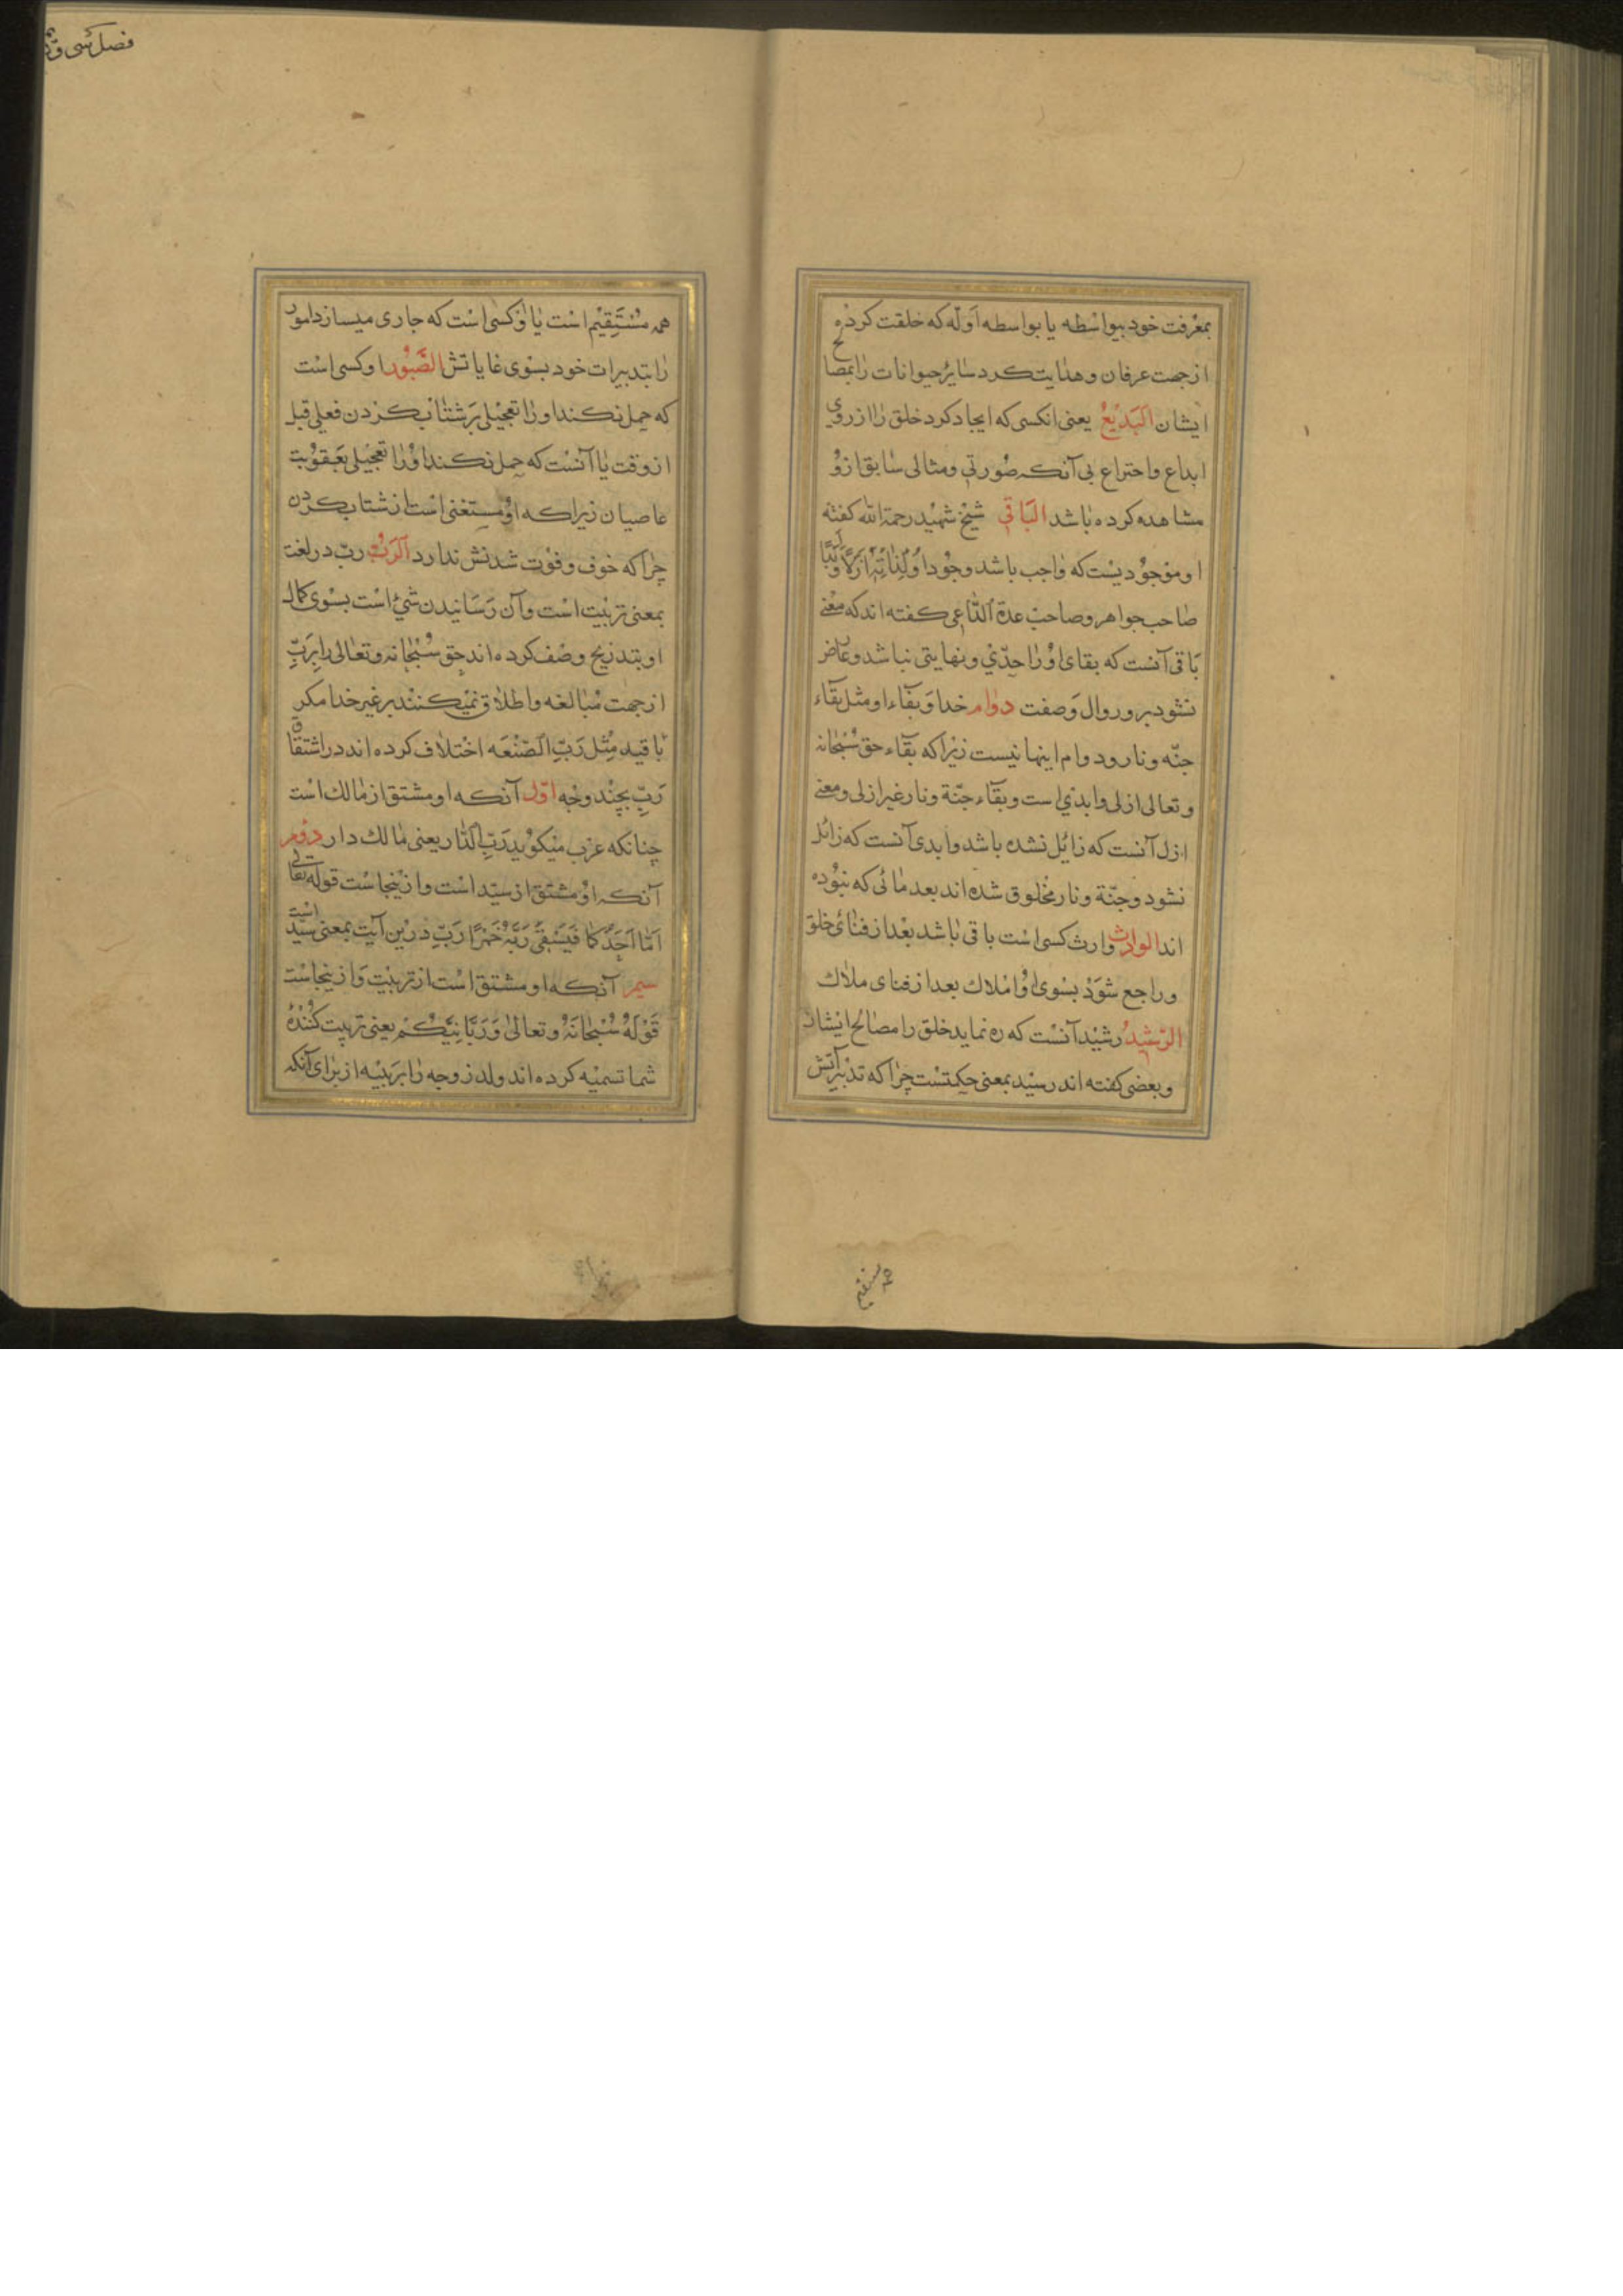 بمعرفت خود بیواسطه یا بواسطه اوله که خلقت کرده
از جهت عرفان و هدایت کرد سایر حیوانات را بمصالح
ایشان البدیع یعنی انکسی که ایجاد کرد خلق را از روی
ابداع و اختراع بی آنکه صورتی و مثالی سابق ازو
مشاهده کرده باشد الباقی شیخ شهید رحمة الله کفته
او موجودیست که واجب باشد وجود او لذاته ازلا و ابدا
صاحب جواهر و صاحب عدة الداعی کفته اند که معنی
باقی آنست که بقای او را حدّی و نهایتی نباشد و عارض
نشود برو زوال و صفت دوام خدا و بقاء او مثل بقاء
جنّه و نار و دوام اینها نیست زیرا که بقاء حق سبحانه
و تعالی ازلی و ابدی است و بقاء جنّة و نار غیر ازلی و معنی
ازل آنست که زائل نشده باشد و ابدی آنست که زائل
نشود و جنّة و نار مخلوق شده اند بعد مائی که نبوده
اند الوارث وارث کسی است باقی باشد بعد از فنائ خلق
و راجع شود بسوی او املاک بعد از فنای ملاک
الرشید رشید آنست که ره نماید خلق را مصالح ایشان
و بعضی کفته اند رشید بمعنی حکیمست چرا که تدبیراتش
همه مستقیم
فصل سی و
همه مستقیم است یا او کسی است که جاری میسازد امور
را بتدبیرات خود بسوی غایاتش الصبور او کسی است
که حمل نکند او را تعجیلی بر شتاب کردن فعلی قبل
از وقت یا آنست که حمل نکند او را تعجیلی بعقوبت
عاصیان زیرا که او مستغنی است از شتاب کردن
چرا که خوف و فوت شدنش ندارد الرب ربّ در لغت
بمعنی تربیت است و آن رسانیدن شئ است بسوی کمال
او بتدریج وصف کرده اند حق سبحانه و تعالی را بربّ
از جهت مبالغه و اطلاق نمیکنند بر غیر خدا مکر
با قید مثل ربّ الصّنعه اختلاف کرده اند در اشتقاق
ربّ بچند وجه اوّل آنکه او مشتق از مالک است
چنانکه عرب میکوید ربّ الدّار یعنی مالک دار دوم
آنکه او مشتق از سیّد است و ازینجاست قوله تعالی
امّا احدکما فیسقی ربّه خمرا ربّ درین آیت بمعنی سیّد است
سیم آنکه او مشتق است از تربیت و ازینجاست
قوله سبحانه و تعالی و ربّانیّکم یعنی تربیت کننده
شما تسمیه کرده اند ولد زوجه را بربیبه از برای آنکه